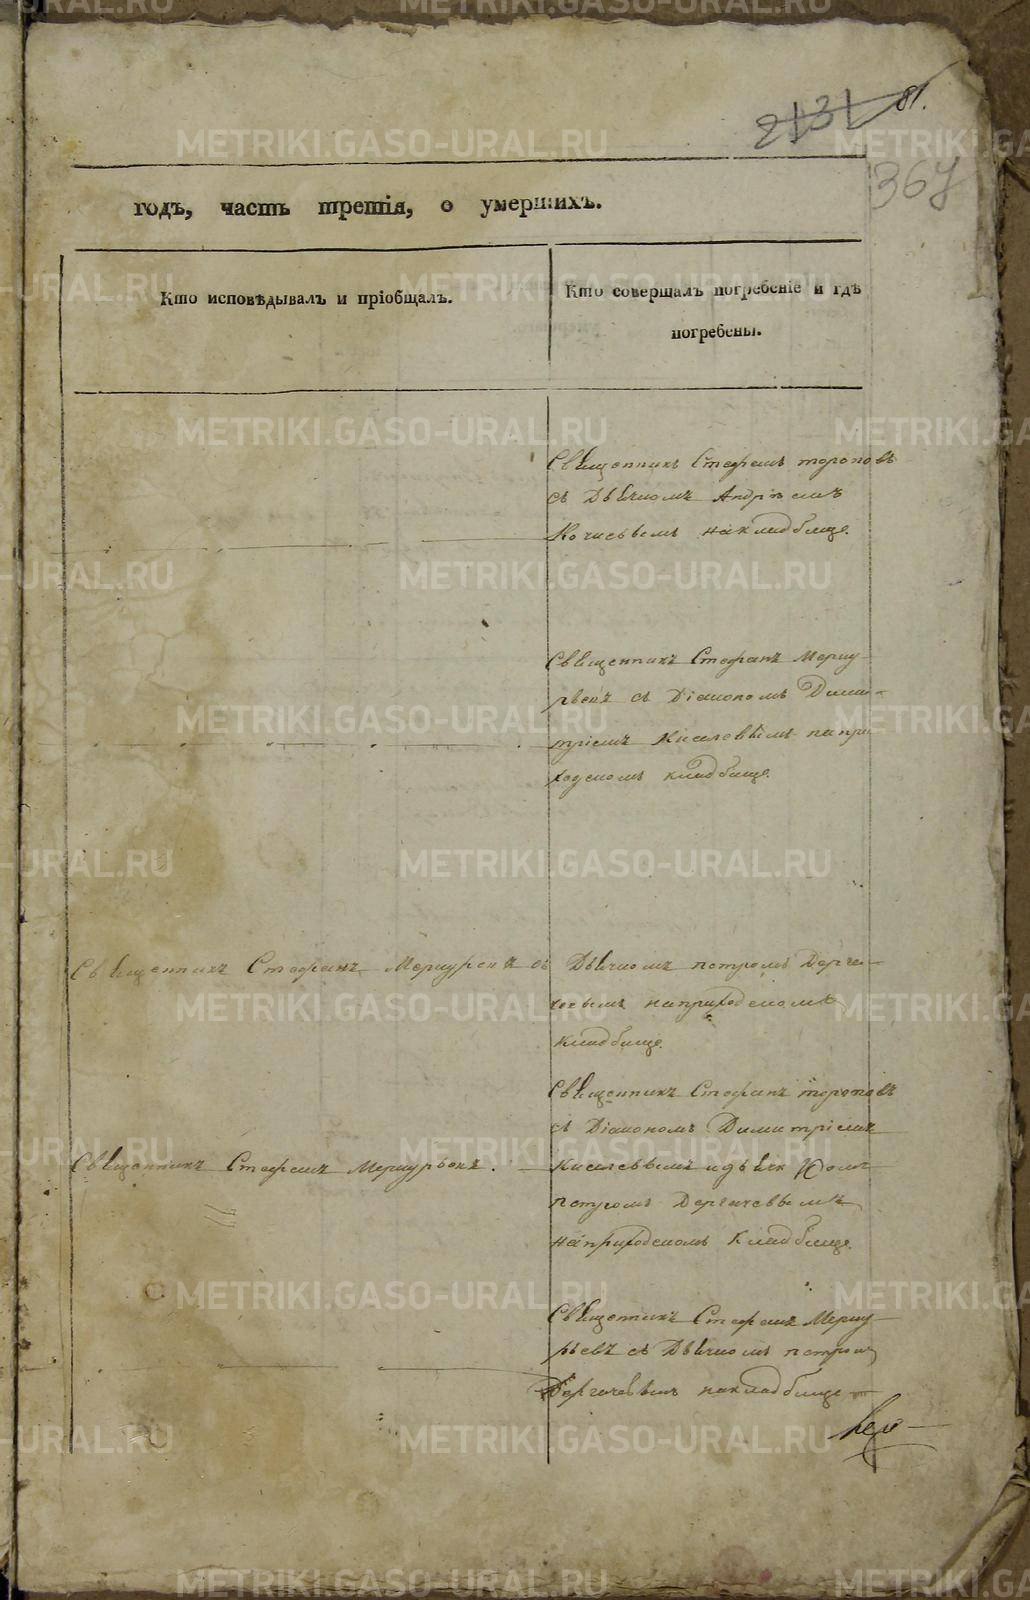 81.
2131
367
годъ, часть третія, о умершихъ.
Кто исповѣдывалъ и пріобщалъ.
Кто совершалъ погребеніе и гдѣ
погребены.
Священникъ Стефанъ тороповъ
съ Дьячкомъ Андріемъ
на кладбище.
Священникъ Стефанъ Мерку-
рьевъ съ Діакономъ Дими-
тріемъ Киселевымъ на при-
ходскомъ кладбище.
Священникъ Стефанъ Меркурьевъ съ Дьячкомъ петромъ Дерга-
чевымъ на приходскомъ
кладбище.
Священникъ Стефанъ Меркурьевъ.
Священникъ Стефанъ тороповъ
съ Діакономъ Димитріемъ
Киселевымъ и дьячкомъ
петромъ Дергачевымъ
на приходскомъ кладбище.
Священникъ Стефанъ Мерку-
рьевъ съ Дьячкомъ петромъ
Дергачевымъ на кладбище
METRIKI.GASO-URAL.RU